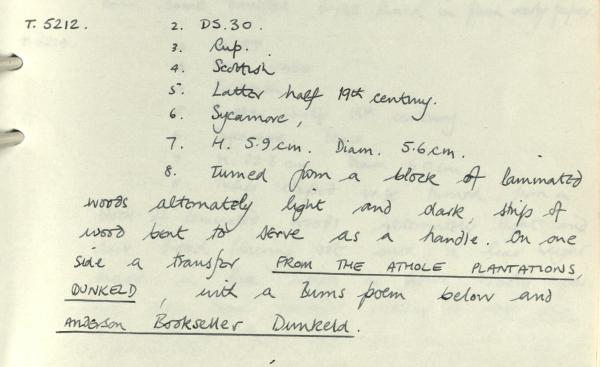 T. 5212. 2. DS.30.
3. Cup.
4. Scottish
5. Latter half 19th century.
6. Sycamore,
7. H. 5.9 cm. Diam. 5.6 cm.
8. Turned from a block of laminated
woods alternately light and dark, strip of
wood bent to serve as a handle. On one
side a transfer FROM THE ATHOLE PLANTATIONS,
DUNKELD, with a Burns poem below and
ANDERSON Bookseller Dunkeld.